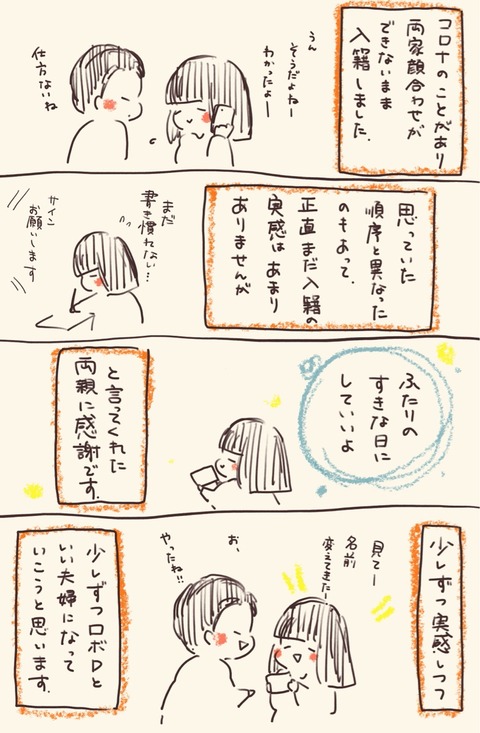 コロナのことがあり
両家顔合わせが
できないまま
入籍しました。
うん
そうだよねー
わかったよー
仕方ないね
思っていた
順序と異なった
のもあって、
正直まだ入籍の
実感はあまり
ありませんが
まだ
書き慣れない…
サイン
お願いします
ふたりの
すきな日に
していいよ
と言ってくれた
両親に感謝です。
少しずつ実感しつつ
見てー
名前
変えてきたー
お、
やったね!!
少しずつロボDと
いい夫婦になって
いこうと思います。